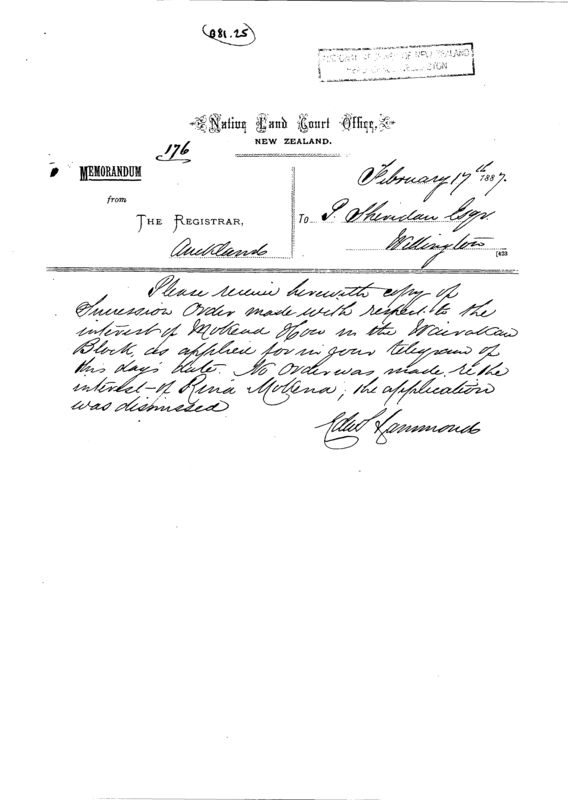 A81.25
NATIONAL ARCHIVES OF NEW ZEALAND
HEAD OFFICE WELLINGTON
Native Land Court Office,
NEW ZEALAND.
176
MEMORANDUM
from
THE REGISTRAR,
Auckland
February 17th 1887.
To P. Sheridan Esqr
Wellington
[433
Please receive herewith copy of
Succession Order made with respect to the
interest of Mokena Hou in the
Block, as applied for in your telegram of
this day's date. No Order was made re the
interest of Rina Mokena; the application
was dismissed
Edw Hammond